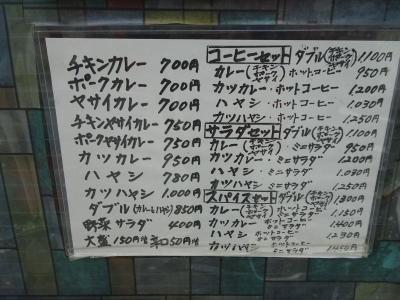 チキンカレー 700円
ポークカレー 700円
ヤサイカレー 700円
チキンヤサイカレー 750円
ポークヤサイカレー 750円
カツカレー 950円
ハヤシ 780円
カツハヤシ 1,000円
ダブル(カレー&ハヤシ) 850円
野菜サラダ 400円
大盛 150円増 辛口50円増
コーヒーセット ダブル(チキン ポーク ヤサイ) 1,100円
カレー(チキン ポーク ヤサイ)・ホットコーヒー 950円
カツカレー・ホットコーヒー 1,200円
ハヤシ・ホットコーヒー 1,030円
カツハヤシ・ホットコーヒー 1,250円
サラダセット ダブル(チキン ポーク ヤサイ) 1,100円
カレー(チキン ポーク ヤサイ)・ミニサラダ 950円
カツカレー・ミニサラダ 1,200円
ハヤシ・ミニサラダ 1,030円
カツハヤシ・ミニサラダ 1,250円
スパイスセット ダブル(チキン ポーク ヤサイ) 1,300円
カレー(チキン ポーク ヤサイ) ホットコーヒー ミニサラダ 1,150円
カツカレー・ホットコーヒー ミニサラダ 1,400円
ハヤシ・ホットコーヒー ミニサラダ 1,230円
カツハヤシ・ホットコーヒー ミニサラダ 1,450円